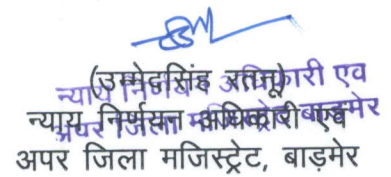 (उम्मेदसिंह रतनू)
न्याय निर्णयन अधिकारी एवं
अपर जिला मजिस्ट्रेट, बाड़मेर
न्याय निर्णयन अधिकारी एव
अपर जिला मजिस्ट्रेट बाड़मेर